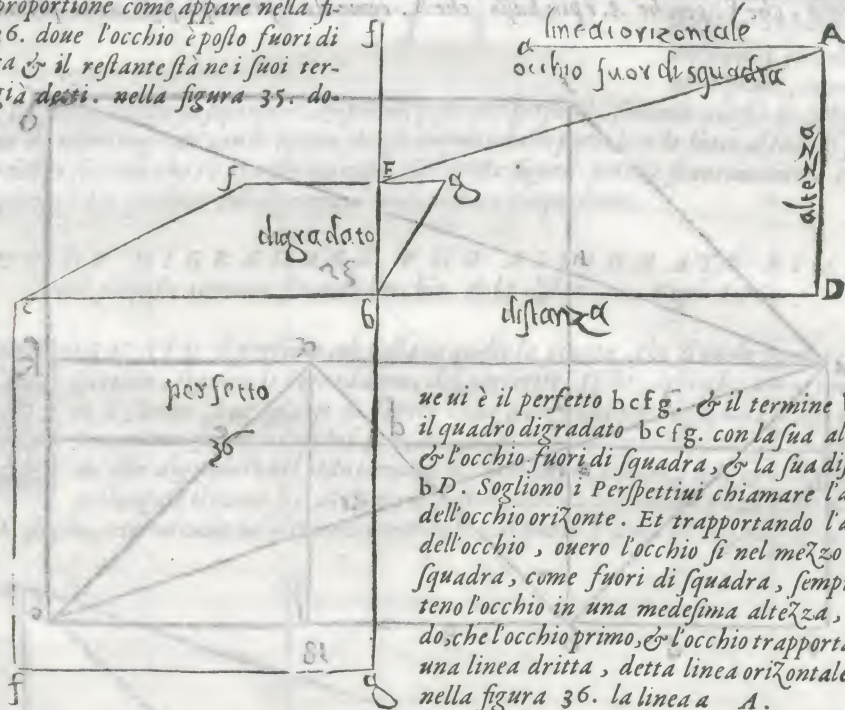 proportione come appare nella fi-
36. doue l'occhio è posto fuori di
ra & il restante stà nei suoi ter-
già detti. nella figura 35. do-
f
a
linea orizontale
A
occhio fuor di squadra
altezza
E
f
g
digradato
35
c
b
distanza
D
perfetto
36
f
g
ue ui è il perfetto bcfg. & il termine
il quadro digradato bcfg. con la sua al
& l'occhio fuori di squadra, & la sua dis
bD. Sogliono i Perspettiui chiamare l'a
dell'occhio orizonte. Et trapportando l'a
dell'occhio, ouero l'occhio si nel mezzo
squadra, come fuori di squadra, semp
teno l'occhio in una medesima altezza,
do, che l'occhio primo, & l'occhio trapporta
una linea dritta, detta linea orizontale
nella figura 36. la linea a A.